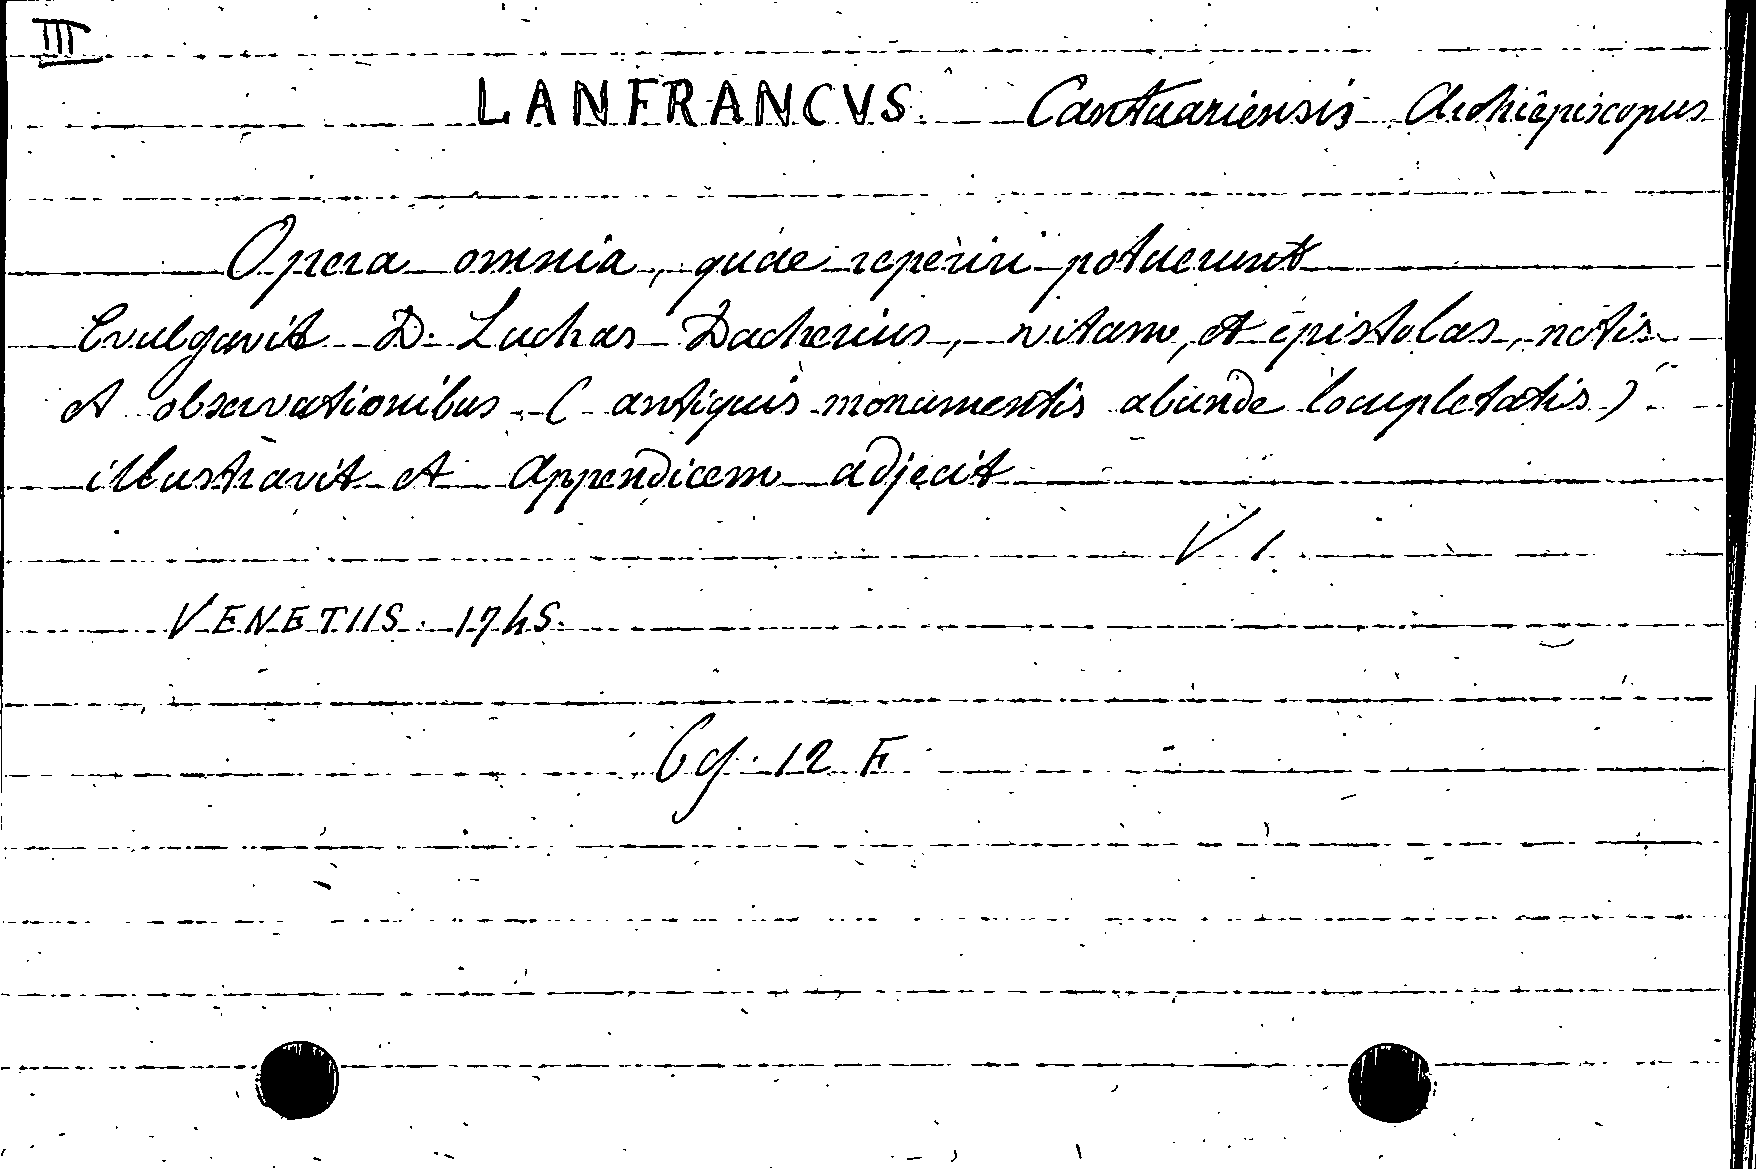 III
LANFRANCVS. Cantuariensis Archiepiscopus
Opera omnia, quae reperiri potuerunt
Evulgavit D. Luchas Dacherius, vitam, et epistolas, notis
et observationibus (antiquis monumentis abunde locupletatis)
illustravit et Appendicem adjecit
V 1.
VENETIIS. 1745.
69. 12 F